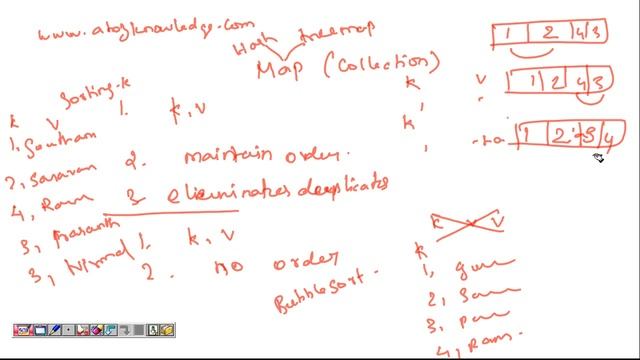 www.atozknowledge.com
Hash treemap
Map (Collection)
Sorting-k
k v
1, Goutham
2, Saravan
4, Ram
3, Prasanth
3, Nirmal
1. k, v
2. maintain order.
3 eliminates duplicates
1. k, v
2. no order
BubbleSort.
k v
k
1 2 4 3
1 2 4 3
1 2 3 4
k v
k
1,
2,
3,
4, Ram.